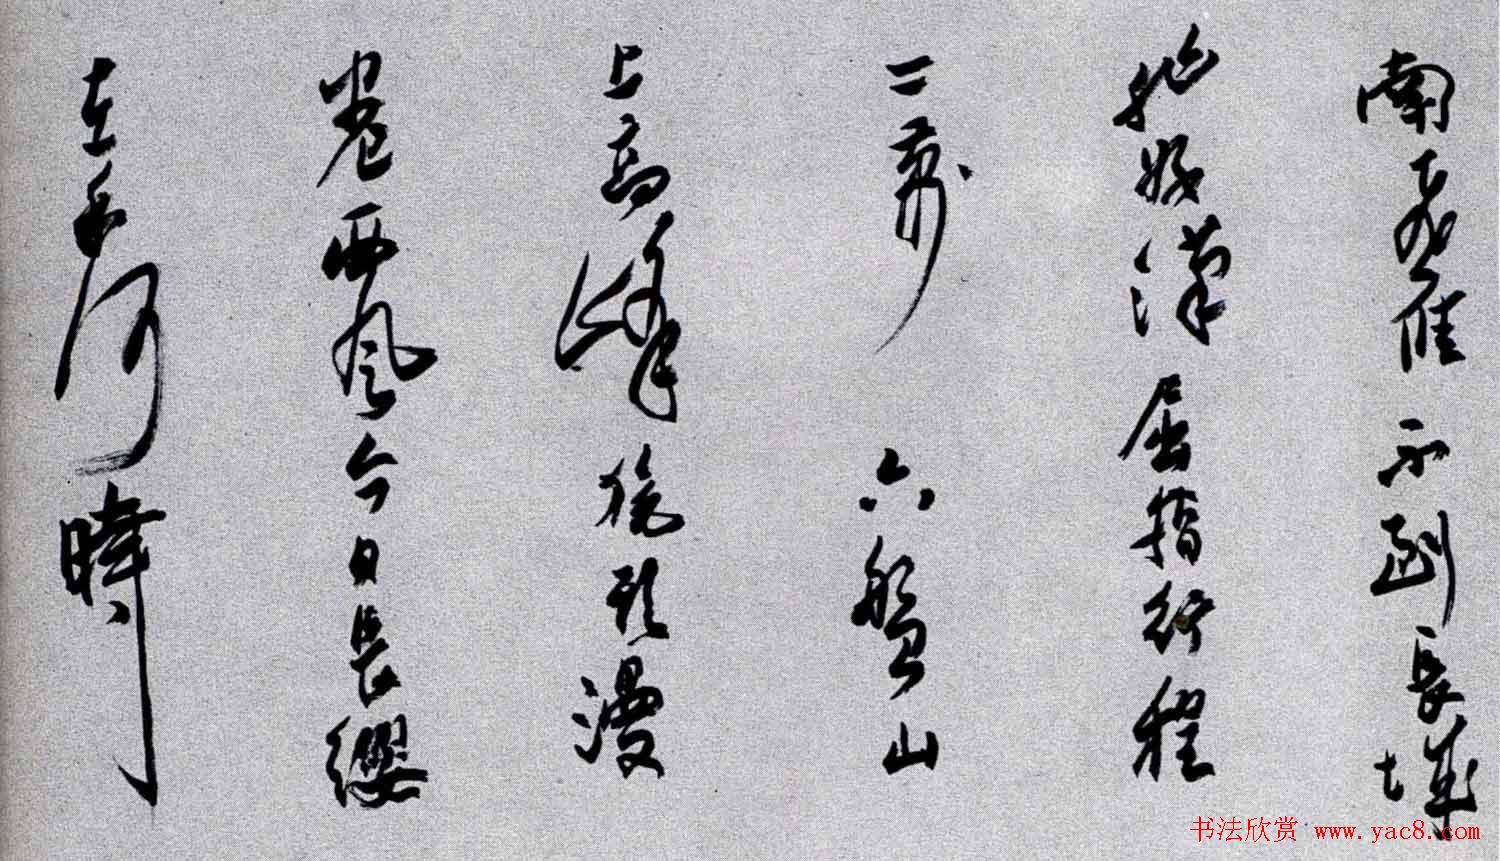 南飛雁不到長城
非好漢屈指行程
二萬六盤山
上高峰旄頭漫
卷西風今日長纓
在手何時
书法欣赏 www.yac8.com